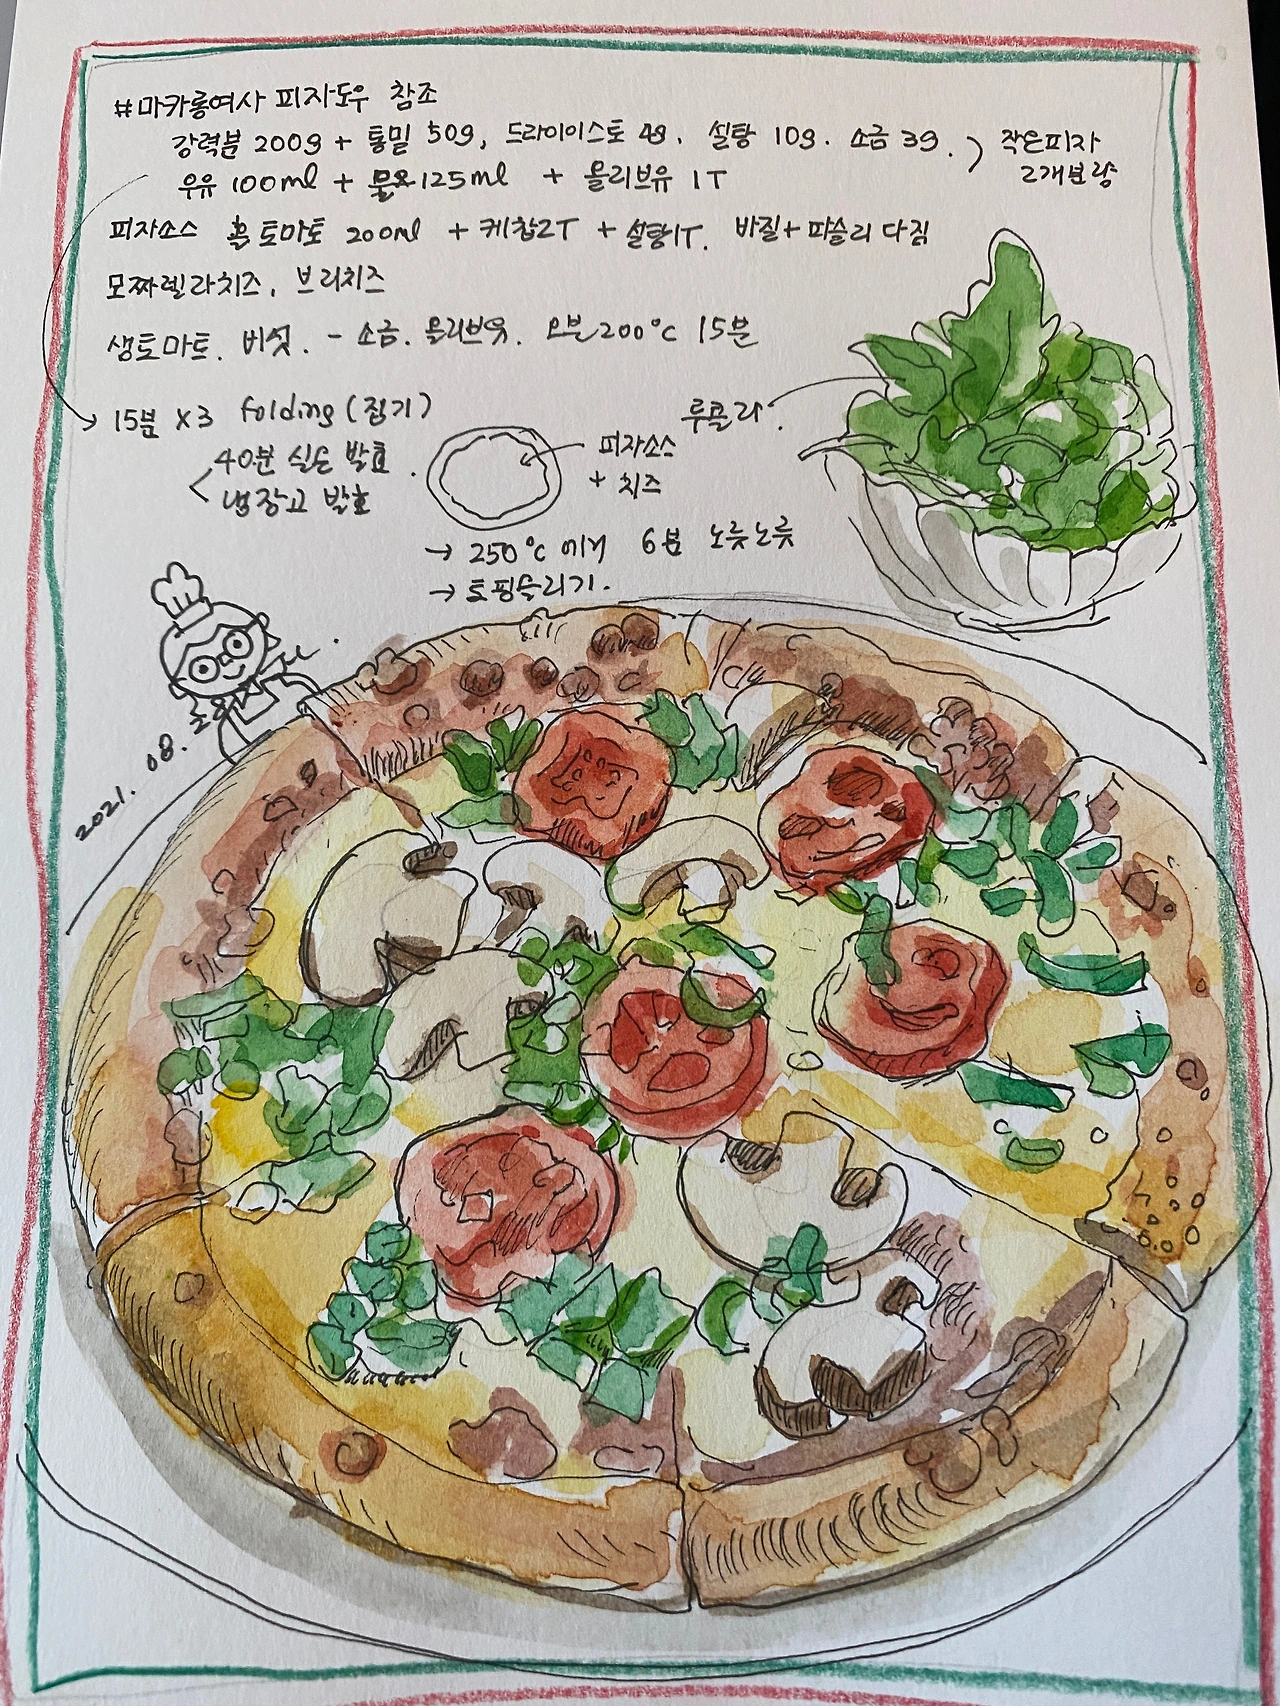 #마카롱여사 피자도우 참조
강력분 200g + 통밀 50g, 드라이이스트 4g. 설탕 10g. 소금 3g.
작은피자
2개분량
우유 100ml + 물 125ml + 올리브유 1T
피자소스 홀토마토 200ml + 케찹2T + 설탕1T. 바질+파슬리 다짐
모짜렐라치즈, 브리치즈
생토마토. 버섯. - 소금. 올리브유. 오븐 200°C 15분
→ 15분 X3 folding (접기)
40분 실온 발효.
냉장고 발효
루콜라.
피자소스
+ 치즈
→ 250°C 에서 6분 노릇노릇
→ 토핑올리기.
2021. 08.